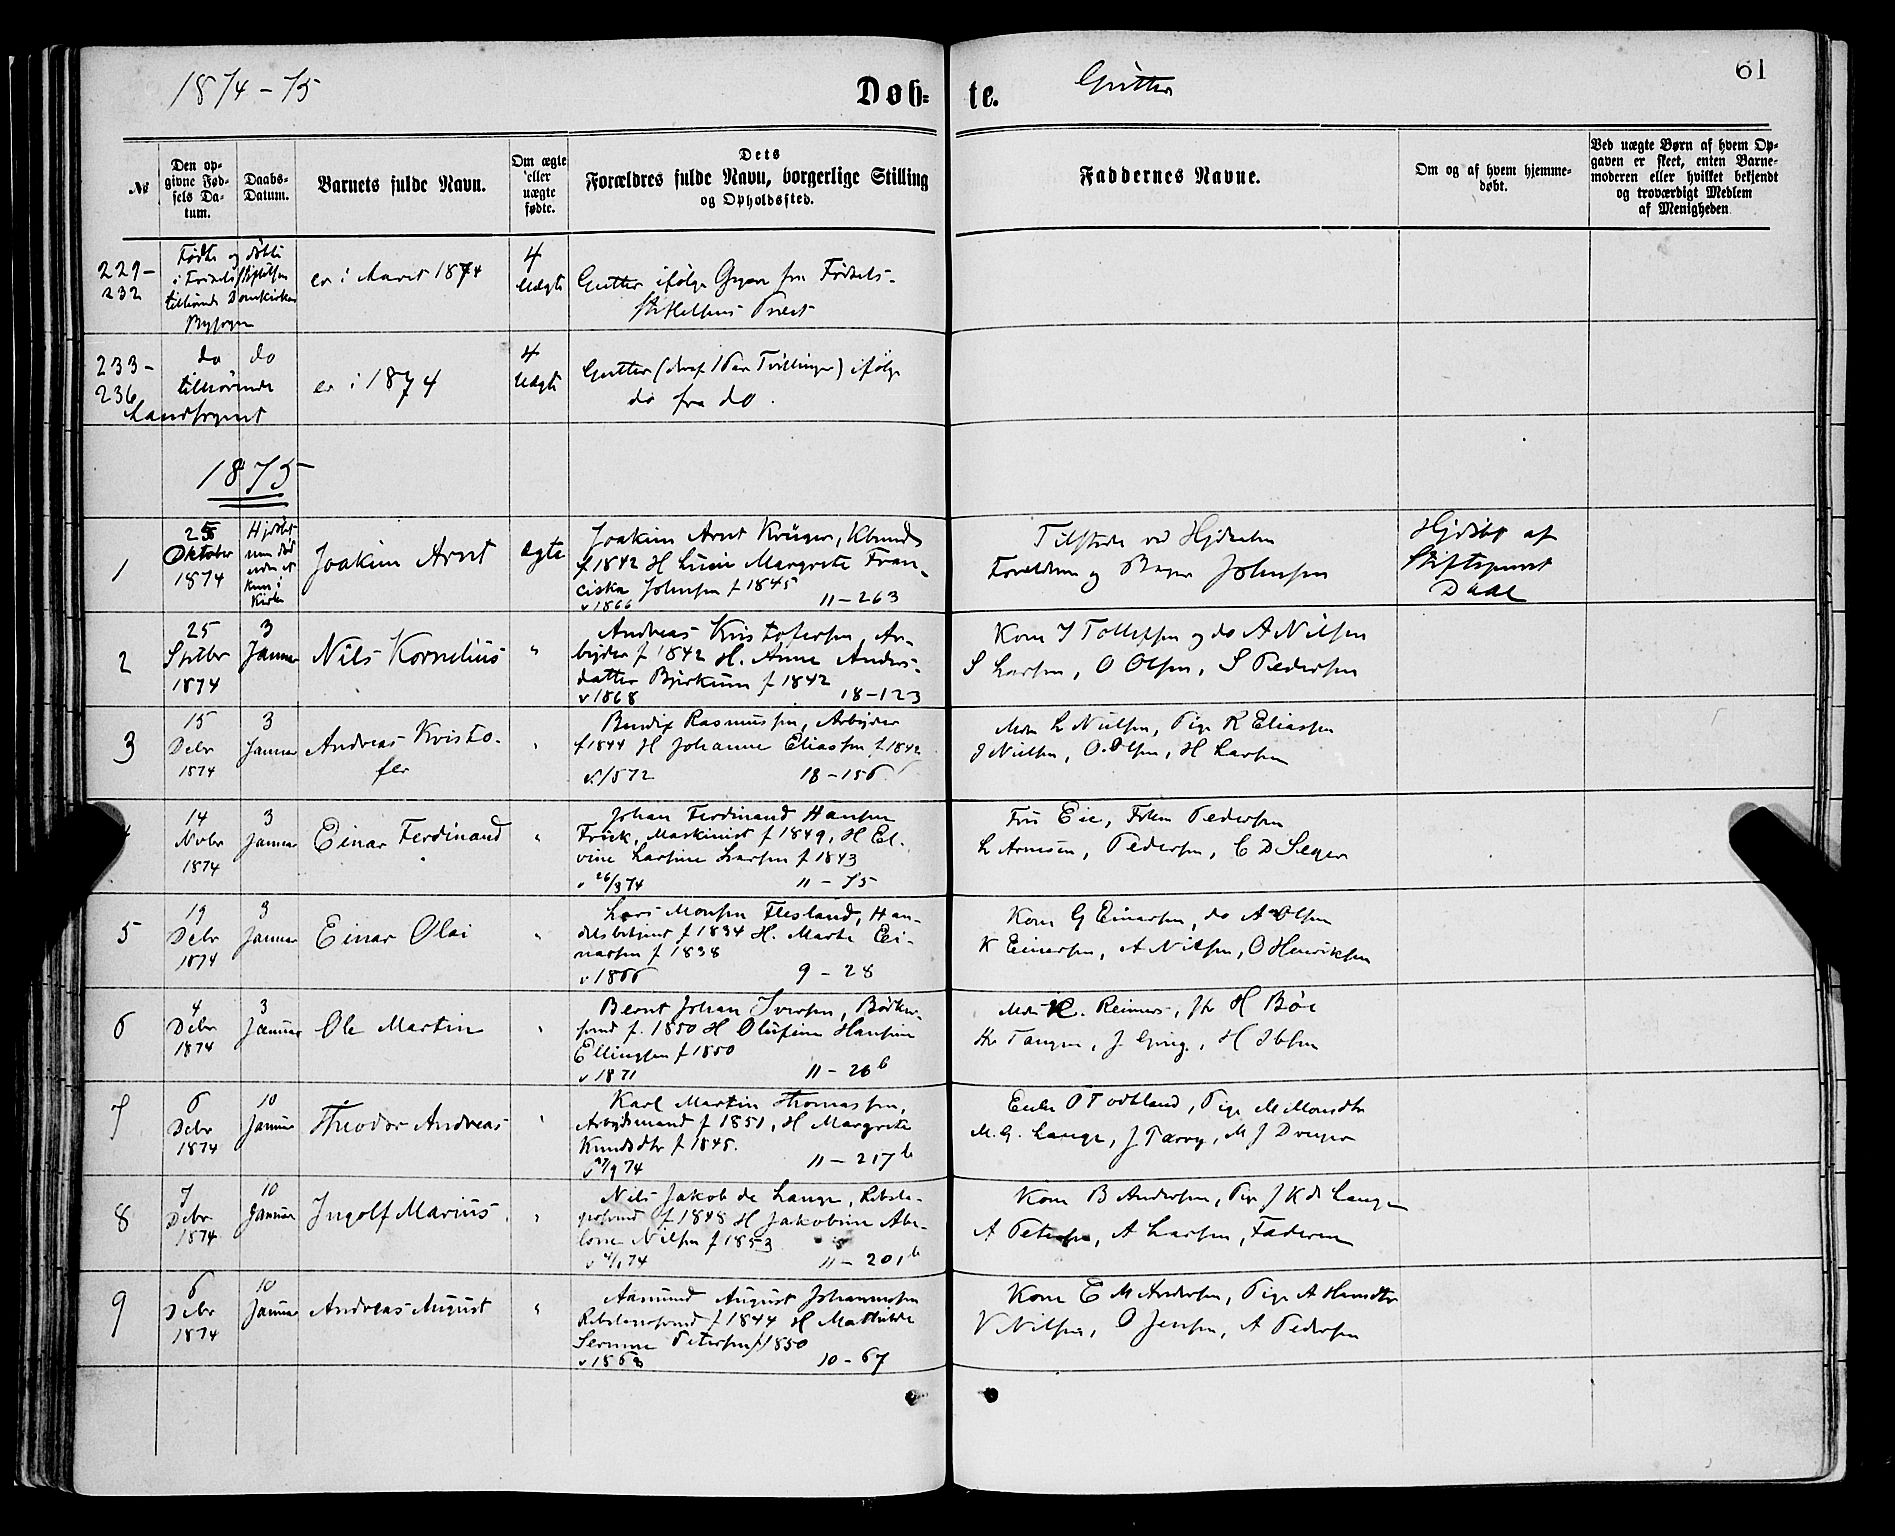 1874-75 Døb- te. Gutter 61
№
Den op-
givne Fød-
sels Da-
tum.
Daabs-
Datum.
Barnets fulde Navn.
Om ægte
eller
uægte
fødte.
Dets
Forældres fulde Navn, borgerlige Stilling
og Opholdssted.
Faddernes Navne.
Om og af hvem hjemme-
døbt.
Ved uægte Børn af hvem Op-
gaven er skeet, enten Barne-
moderen eller hvilket bekjendt
og troværdigt Medlem
af Menigheden
229-
232
Fødte og døbte
i Fødselsstiftelsen
tilhørende Domkirkens
Bysogn
er i Aaret 1874
4
Uægte
Gutter ifølge Opgave fra Fødsels-
stiftelsens Præst
233-
236
do do
tilhørende
Landsognet
er i 1874
4
Uægte
Gutter (deraf 1 Par Tvillinger) ifølge
do fra do.
1875
1
25
Oktober
1874
Kirken
Joakim Arnt
ægte
Joakim Arnt Krüger,
f 1842 H Margrete Fran-
ciska Johnsen f 1845
v 1866 11-263
Tilstede ved
Forældrene og Johnsen
Hjdøbt af
Stiftsprovst
Daae
2
25
Septbr
1874
3
Januar
Nils Kornelius
"
Andreas Kristofersen, Ar-
beider f 1842 H. Anne Anders-
datter Bjerkum f 1842
v 1868 18-123
Kone T Tollefsen og do A Nilsen
S Larsen, O Olsen, S Pedersen
3
15
Debr
1874
3
Januar
Andreas Kristo-
fer
"
Bendix Rasmussen, Arbeider
f 1844 H Johanne Eliassen f 1842
18-156
L Nielsen, Pige R Eliassen
J Nielsen, O. Olsen, H Larsen
14
Novbr
1874
3
Januar
Einar Ferdinand
"
Johan Ferdinand Hansen
Frick, Maskinist f 1849, H El-
vine Larsine Larsen f 1843
v 26/3 74 11-75
Fru Eie, Pedersen
L Arnesen, Pedersen, C D Seger
5
19
Debr
1874
3
Januar
Einar Olai
"
Lars Monsen Flesland, Han-
delsbetjent f 1834 H. Marta Ei-
narsen f 1838
v 1866 9-28
Kone G Einarsen, do A Olsen
K Einarsen, A Nilsen, O Henriksen
6
4
Debr
1874
3
Januar
Ole Martin
"
Bernt Johan Iversen, Bødker-
svend f. 1850 H Olufine Hansine
Ellingsen f 1850
v 1871 11-26b
Reimers, H Bøe
Tangen, H Ibsen
7
6
Debr
1874
10
Januar
Theodor Andreas
"
Karl Martin Thomassen,
Arbejdsmand f 1851, H Margrete
Knudsdtr f 1845.
v 27/9 74 11-217b
Enke O Todtland, Pige M Monsdtr
M. G. Lange, J Tarvg, M J Dreyer
8
7
Debr
1874
10
Januar
Ingolf Marius
"
Nils Jakob de Lange, Rebsla-
gersvend f 1848 H Jakobine Abe-
lone Nilsen f 1853
11-201b
Kone B Andersen, Pige J K de Lange
A Petersen, A Larsen, Faderen
9
6
Debr
1874
10
Januar
Andreas August
"
Aamund August Johannesen
f 1844 H Mathilde
Serine Petersen f 1850
v 1868 10-67
Kone E M Andersen, Pige A Hansdtr
N Nilsen, O Jensen, A Pedersen